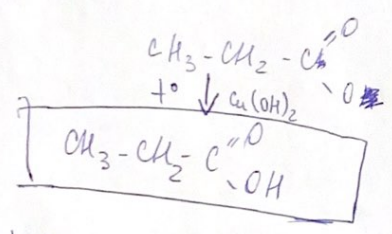 CH₃-CH₂-C =O \ O
t° ↓ Cu(OH)₂
CH₃-CH₂-C =O \ OH